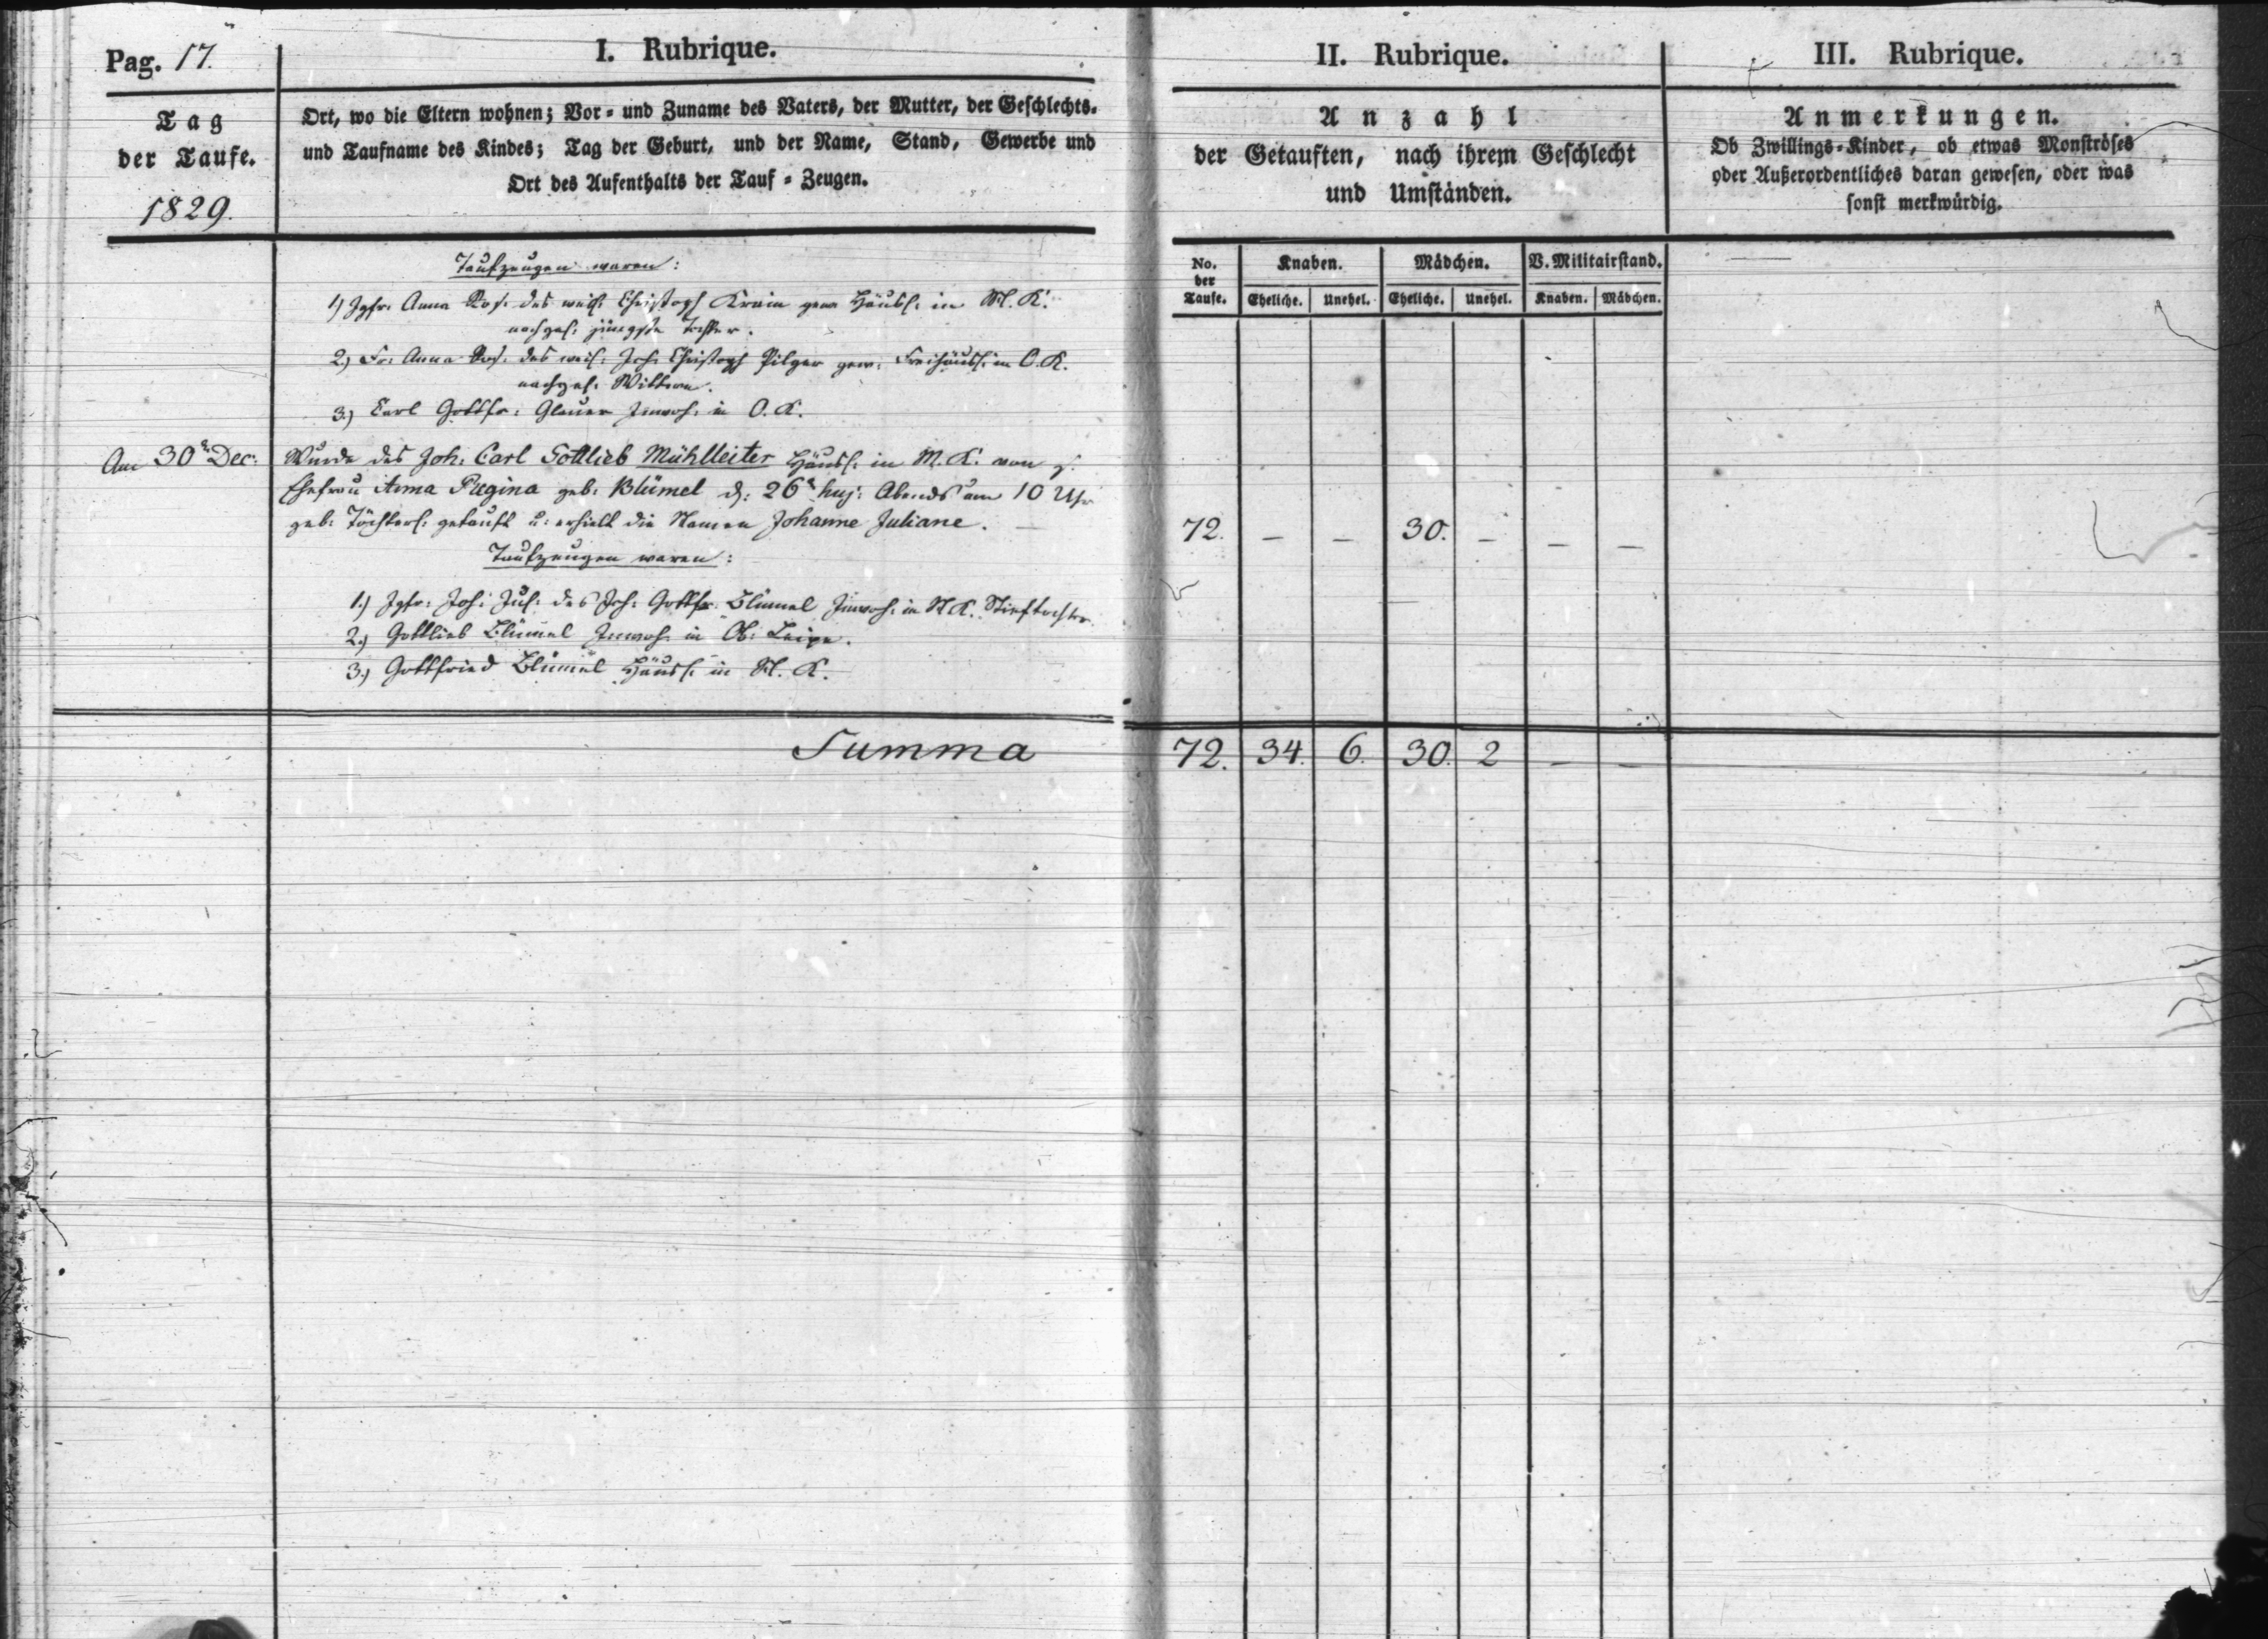 Pag. 17.
I. Rubrique.
Tag
der Taufe.
1829.
Ort, wo die Eltern wohnen; Vor- und Zuname des Vaters, der Mutter, der Geschlechts-
und Taufname des Kindes; Tag der Geburt, und der Name, Stand, Gewerbe und
Ort des Aufenthalts der Tauf-Zeugen.
Taufzeugen waren:
1) Jgfr. Anna Ros. des weil. Christoph Krain gew. Häusl. in M. K.
nachgel. jüngste Tochter.
2) Fr: Anna Ros. des weil. Joh. Christoph Pilger gew. Freihäusl. in O. K.
nachgel. Wittwe.
3.) Carl Gottfr: Glauer Inwoh. in O. K.
Am 30t Dec:
Wurde des Joh: Carl Gottlieb Mühlleiter Häusl. in M. K. von s.
Ehefrau Anna Regina geb: Blümel d. 26t huj: Abends um 10 Uhr
geb: Töchterl. getauft u: erhielt die Namen Johanne Juliane.
Taufzeugen waren:
1.) Jgfr: Joh: Jul: des Joh: Gottfr. Blümel Inwoh: in M. K. Stieftochter
2.) Gottlieb Blümel Inwoh. in Ob: Leipe.
3.) Gottfried Blümel Häusl. in M. K.
Summa
II. Rubrique.
Anzahl
der Getauften, nach ihrem Geschlecht
und Umständen.
No. der Taufe. Knaben. Mädchen. V. Militairstand.
Eheliche. Unehel. Eheliche. Unehel. Knaben. Mädchen.
72. – – 30. – – –
72. 34. 6. 30. 2 – –
III. Rubrique.
Anmerkungen.
Ob Zwillings-Kinder, ob etwas Monströses
oder Außerordentliches daran gewesen, oder was
sonst merkwürdig.